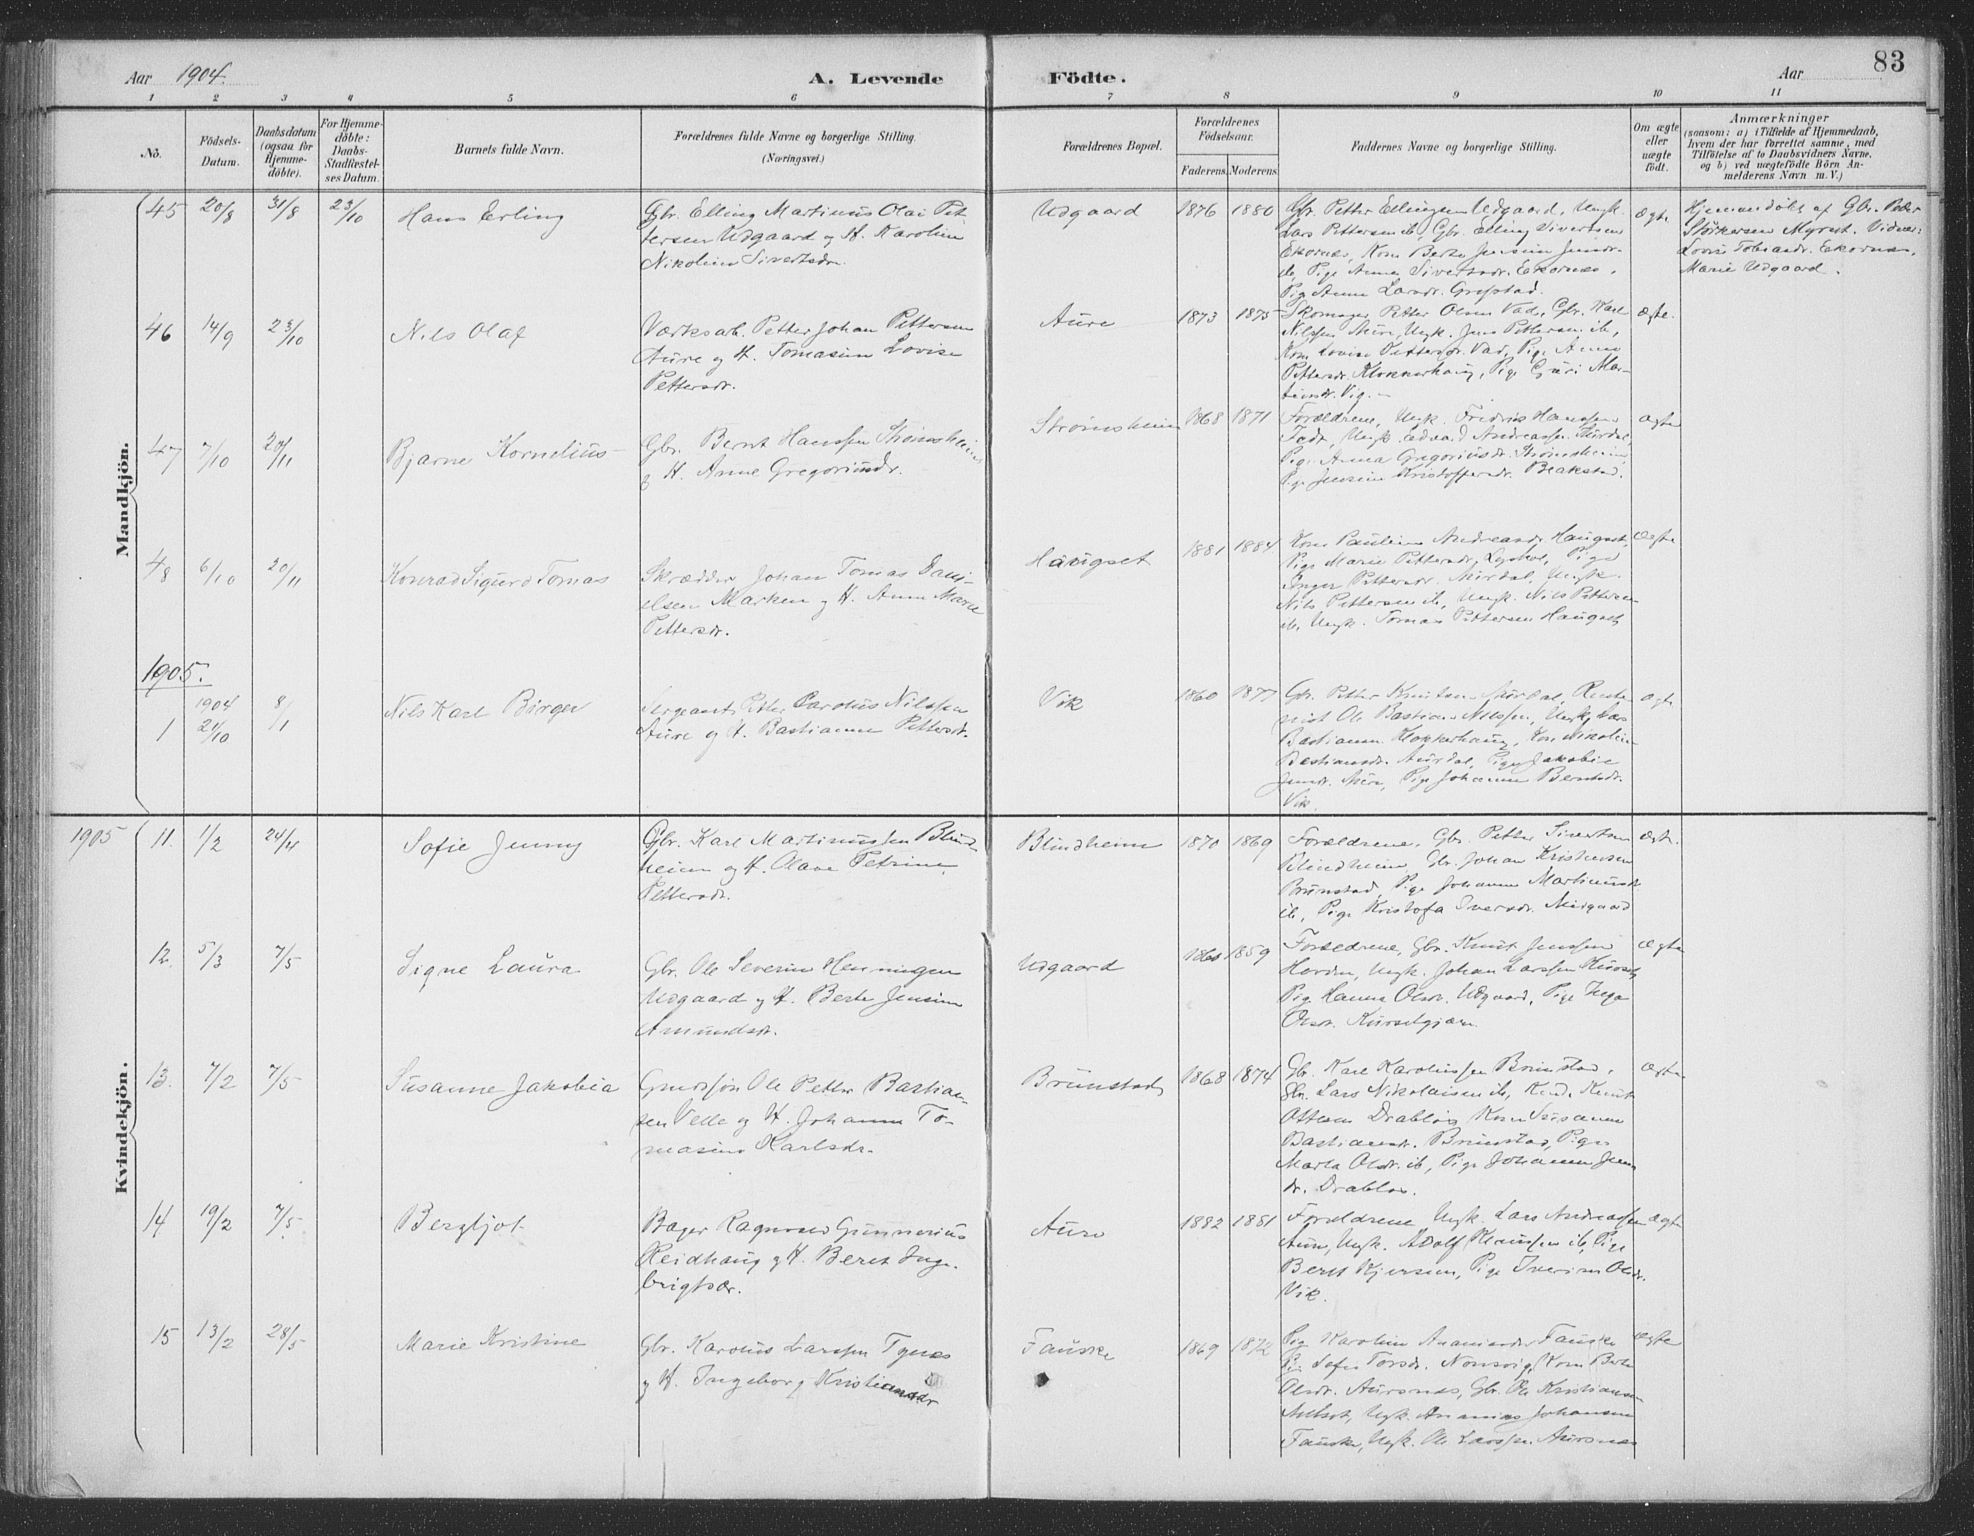 Aar 1904.
A. Levende
Födte.
Aar
83
1 2 3 4 5 6 7 8 9 10 11
No.
Födsels-
Datum.
Daabsdatum
(ogsaa for
Hjemme-
döbte).
For Hjemme-
döbte:
Daabs-
Stadfæstel-
ses Datum.
Barnets fulde Navn.
Forældrenes fulde Navne og borgerlige Stilling.
(Næringsvei.)
Forældrenes Bopæl.
Forældrenes
Födselsaar.
Faderens. Moderens.
Faddernes Navne og borgerlige Stilling.
Om ægte
eller
uægte
födt.
Anmærkninger
(saasom: a) i Tilfælde af Hjemmedaab,
hvem der har forrettet samme, med
Tilföielse af to Daabsvidners Navne,
og b) ved uægtefödte Börn An-
melderens Navn m. V.)
Mandkjön.
45 20/8 31/8 23/10 Hans Erling
Gbr. Elling Martinus Olai Pet-
tersen Udgaard og H. Karoline
Nikoline Sivertsdr.
Udgaard 1876 1880
Gbr. Petter Ellingsen Udgaard, Ungk.
Lars Pettersen ib, Gbr. Elling Sivertsen
Ekornæs, Kone Berte Jensine Jensdr.
ib, Pige Anne Sivertsdr. Ekornæs,
Pige Anne Larsdr. Grefstad.
ægte
Hjemmedøbt af Gbr. Peder
Størkersen Myrset. Vidner:
Lovise Tobiasdr. Ekornæs,
Marie Udgaard.
46 14/9 23/10 Nils Olaf
Værksarb. Petter Johan Pettersen
Aure og H. Tomasine Lovise
Pettersdr.
Aure 1873 1875
Skomager Petter Olsen Vad, Gbr. Karl
Nilssen Aure, Ungk. Jens Pettersen ib,
Kone Lovise Pettersdr. Vad, Pige Anne
Pettersdr. Klokkerhaug, Pige Guri Mar-
tinsdr. Vig.
ægte.
47 7/10 20/11 Bjarne Kornelius
Gbr. Bernt Hanssen Strømsheim
og H. Anne Gregoriusdr.
Strømsheim 1868 1871
Forældrene, Ungk. Fredrik Hanssen
Tadt, Ungk. Edvard Andreassen Aurdal,
Pige Anna Gregoriusdr. Strømsheim,
Pige Jensine Kristoffersdr. Blakstad.
ægte
48 6/10 20/11 Konrad Sigurd Tomas
Skrædder Johan Tomas Dani-
elsen Marken og H. Anne Marie
Pettersdr.
Haugset 1881 1884
Kone Pauline Andreasdr. Haugset,
Pige Marie Pettersdr. Lyshol, Pige
Inger Pettersdr. Aurdal, Ungk.
Nils Pettersen ib, Ungk. Nils Pettersen
ib, Ungk. Tomas Pettersen Haugset
Ægte
1905.
1 1904 21/10 8/1 Nils Karl Birger
Sergeant Petter Carolus Nilssen
Aure og H. Bastianne Pettersdr.
Vik 1860 1877
Gbr. Petter Knutsen Aurdal, Rente-
nist Ole Bastian Nilssen, Ungk. Lars
Bastiansen Klokkerhaug, Kone Nikoline
Bastiansdr. Aurdal, Pige Jakobie
Jensdr. Aure, Pige Johanne Berntsdr.
Vik.
ægte
Kvindekjön.
1905 11. 1/2 24/4 Sofie Jenny
Gbr. Karl Martinussen Blind-
heim og H. Olave Petrine
Pettersdr.
Blindheim 1870 1869
Forældrene, Gbr. Petter Sivertsen
Blindheim, Gbr. Johan Kristensen
Brunstad, Pige Johanne Martinusdr.
ib, Pige Kristofa Iversdr. Midgaard
ægte
12. 5/3 7/5 Signe Laura
Gbr. Ole Severin Henningen
Udgaard og H. Berte Jensine
Amundsdr.
Udgaard 1860 1859
Forældrene, Gbr. Knut Jenssen
Hovden, Ungk. Johan Larssen Kurset,
Pige Hanna Olsdr. Udgaard, Pige Inga
Olsdr. Kursetgjære.
ægte
13. 7/2 7/5 Susanne Jakobia
Grundsjon Ole Petter Bastian-
sen Velle og H. Johanne To-
masine Karlsdr.
Brunstad 1868 1874
Gbr. Karl Karolussen Brunstad,
Gbr. Lars Nikolaisen ib, Kand. Knut
Ottesen Drabløs, Kone Susanne
Bastiansdr. Brunstad, Pige
Marta Olsdr. ib, Pige Johanne Jens-
dr. Drabløs.
Ægte
14 19/2 7/5 Bergljot
Bager Ragnvald Gunnerius
Reidhaug og H. Beret Inge-
brigtsdr.
Aure 1882 1881
Forældrene, Ungk. Lars Andreassen
Aure, Ungk. Adolf Klaussen ib, Pige
Beret Kjersem, Pige Iverine Olsdr.
Vik.
ægte
15 13/2 28/5 Marie Kristine
Gbr. Karolus Larssen Tynes
og H. Ingeborg Kristiansdr
Fauske 1869 1872
Pige Karoline Ananiasdr Fauske
Pige Sofie Torsdr. Nonsvig, Kone Berte
Olsdr. Aursnes, Gbr. Ole Kristiansen
Melset, Ungk. Ananias Johansen
Fauske, Ungk. Ole Larssen Aursnes
ægte